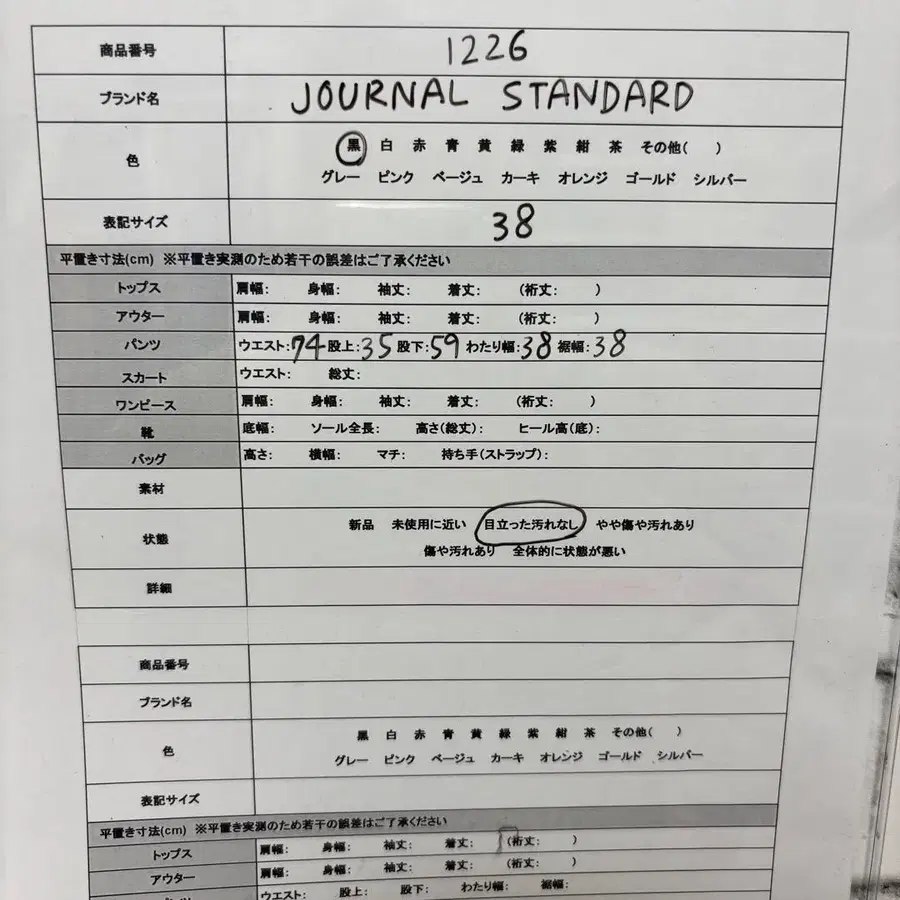 商品番号 1226
ブランド名 JOURNAL STANDARD
色 黒 白 赤 青 黄 緑 紫 紺 茶 その他( )
グレー ピンク ベージュ カーキ オレンジ ゴールド シルバー
表記サイズ 38
平置き寸法(cm) ※平置き実測のため若干の誤差はご了承ください
トップス 肩幅: 身幅: 袖丈: 着丈: (裄丈: )
アウター 肩幅: 身幅: 袖丈: 着丈: (裄丈: )
パンツ ウエスト:74 股上:35 股下:59 わたり幅:38 裾幅:38
スカート ウエスト: 総丈:
ワンピース 肩幅: 身幅: 袖丈: 着丈: (裄丈: )
靴 底幅: ソール全長: 高さ(総丈): ヒール高(底):
バッグ 高さ: 横幅: マチ: 持ち手(ストラップ):
素材
状態 新品 未使用に近い 目立った汚れなし やや傷や汚れあり
傷や汚れあり 全体的に状態が悪い
詳細
商品番号
ブランド名
色 黒 白 赤 青 黄 緑 紫 紺 茶 その他( )
グレー ピンク ベージュ カーキ オレンジ ゴールド シルバー
表記サイズ
平置き寸法(cm) ※平置き実測のため若干の誤差はご了承ください
トップス 肩幅: 身幅: 袖丈: 着丈: (裄丈: )
アウター 肩幅: 身幅: 袖丈: 着丈: (裄丈: )
ウエスト: 股上: 股下: わたり幅: 裾幅: